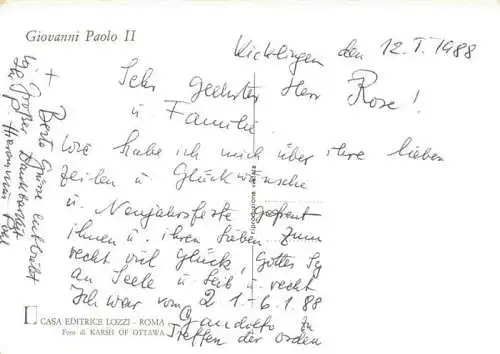 Giovanni Paolo II
Kicklingen den 12.I.1988
Sehr geehrter Herr Rose!
u Familie
Wie habe ich mich über ihre lieben
zeilen u Glückwünsche
u. Neujahrsfeste gefreut
ihnen u. ihren lieben zum
recht viel Glück, Gottes Sg
an Seele u Leib u recht
Ich war vom 2.1.-6.1.88
Gandolfo zu
Treffen der orden
+ Beste Grüße entbietet
in Großer Dankbarkeit
Ihr P. Hieronimus
riproduzione vietata
CASA EDITRICE LOZZI - ROMA
Foto di KARSH OF OTTAWA